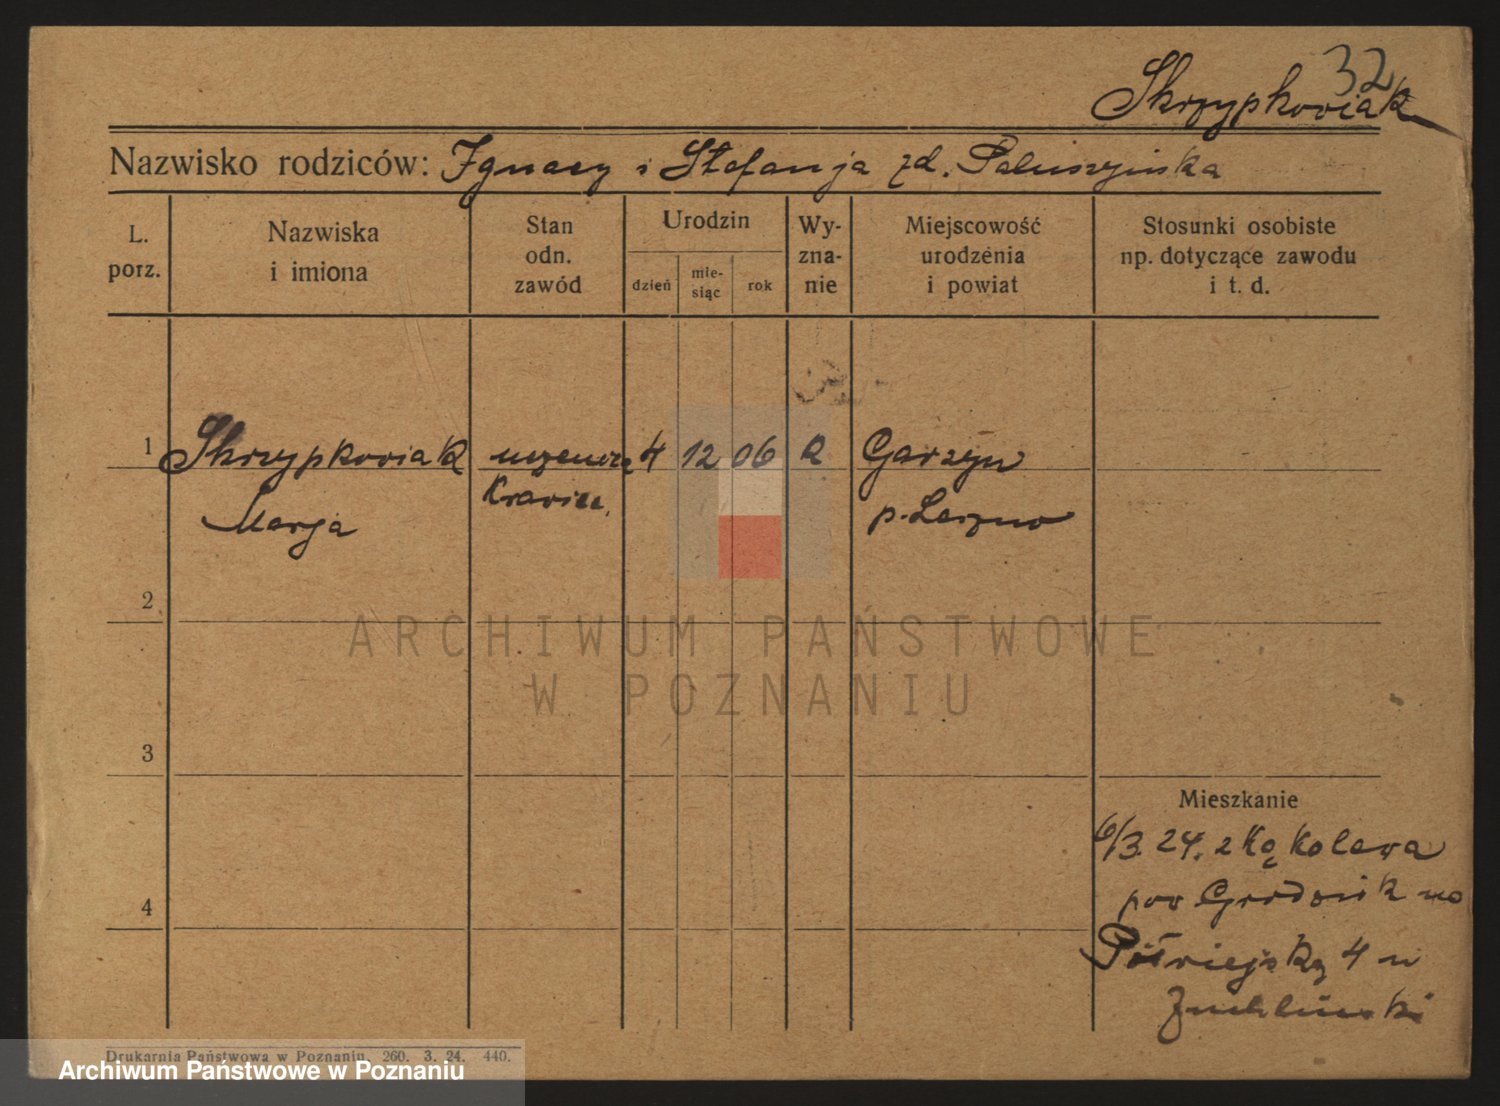 32
Skrzypkowiak
Nazwisko rodziców: Ignacy i Stefanja zd. Paluszyńska
L. porz.
Nazwiska i imiona
Stan odn. zawód
Urodzin
dzień
mie-siąc
rok
Wy-zna-nie
Miejscowość urodzenia i powiat
Stosunki osobiste np. dotyczące zawodu i t. d.
1 Skrzypkowiak uczenica 4 12 06 k Garzyn
Marja Krawiec. p. Leszno
2
3
Mieszkanie
6/3. 24. z Kąkolewa
pow Grodzisk na
4
Półwiejską 4 u
Drukarnia Państwowa w Poznaniu. 260. 3. 24. 440.
ARCHIWUM PAŃSTWOWE
W POZNANIU
Archiwum Państwowe w Poznaniu